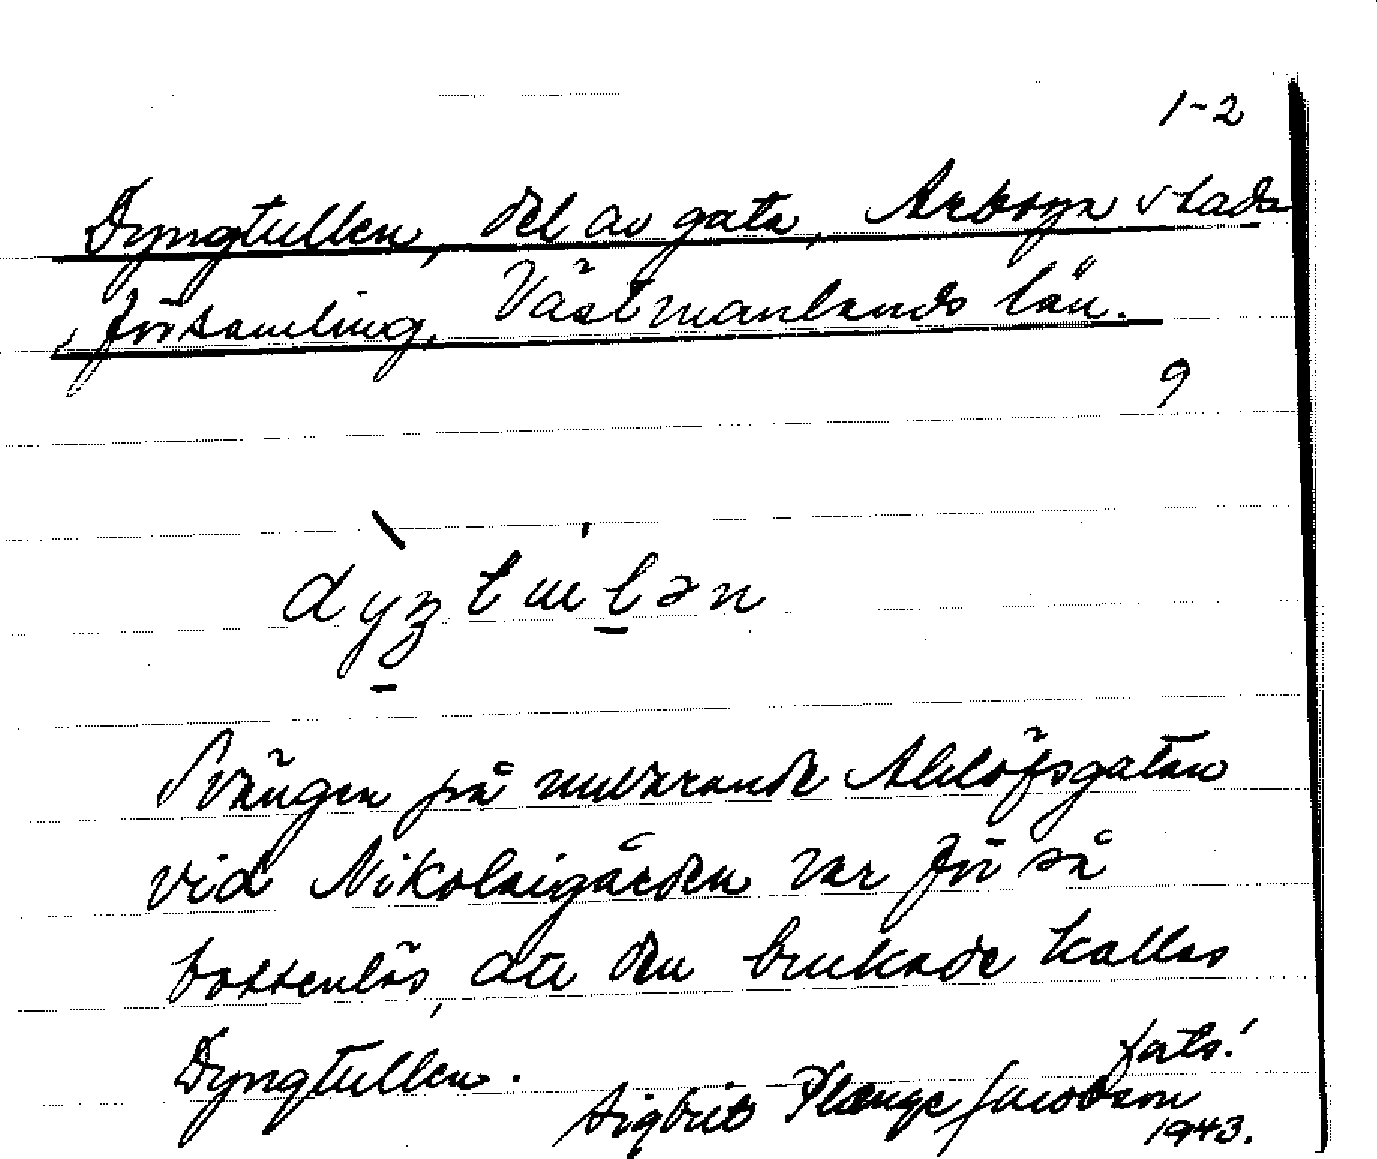 1-2
Dyngtullen, del av gata, Arboga stads
församling, Västmanlands län.
9
Svängen på nuvarande Ahllöfsgatan
vid Nikolaigården var för så
bottenlös, att den brukade kallas
Dyngtullen.
forts!
Sigbrit Plænge Jacobson
1943.